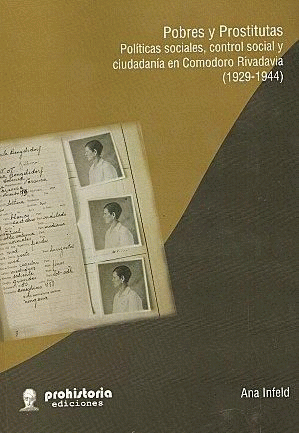 Pobres y Prostitutas
Políticas sociales, control social y
ciudadanía en Comodoro Rivadavia
(1929-1944)
Ana Infeld
prohistoria
ediciones